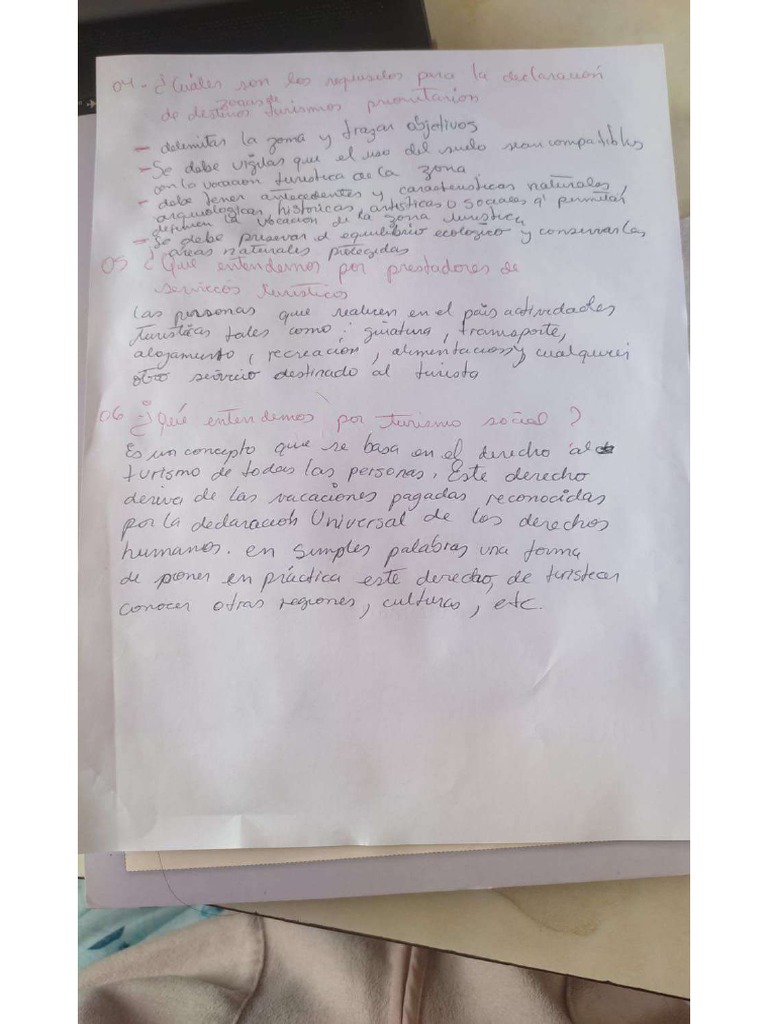 04 - ¿Cuáles son los requisitos para la declaración
zonas de
de destinos turismos prioritarios
- delimitar la zoma y trazar objetivos
- Se debe vigilar que el uso del suelo sean compatibles
con la vocación turística de la zona
- debe tener antecedentes y características naturales,
arqueologicas, históricas, artísticas o sociales q' permitan
definen la vocación de la zona turística
- Se debe preservar el equilibrio ecológico y conservar las
areas naturales protegidas
05 ¿Qué entendemos por prestadores de
servicios turísticos
Las personas que realicen en el país actividades
turisticas tales como: guiatura, transporte,
alojamiento, recreación, alimentacion y cualquier
otro servicio destinado al turista
06 - ¿Qué entendemos por turismo social?
Es un concepto que se basa en el derecho al
turismo de todas las personas. Este derecho
deriva de las vacaciones pagadas reconocidas
por la declaración Universal de los derechos
humanos. en simples palabras una forma
de poner en práctica este derecho, de turistear
conocer otras regiones, culturas, etc.